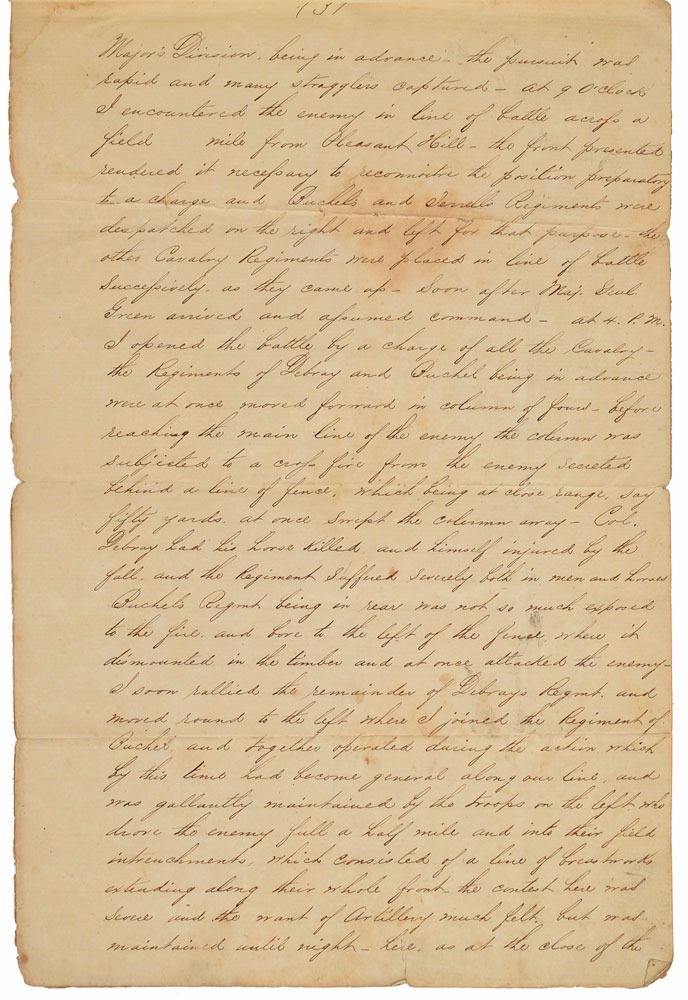 (3)
Major's Division. being in advance - the pursuit was
rapid and many stragglers captured - at 9 O'clock
I encountered the enemy in line of battle across a
field mile from Pleasant Hill - the front presented
rendered it necessary to reconnoitre the position preparatory
to a charge and Buchel's and Terrell's Regiments were
despatched on the right and left for that purpose - the
other Cavalry Regiments were placed in line of battle
Successively. as they came up - Soon after Maj. Genl.
Green arrived and assumed command - at 4. P. M.
I opened the battle by a charge of all the Cavalry -
the Regiments of Debray and Buchel being in advance
were at once moved forward in column of fours - before
reaching the main line of the enemy the column was
subjected to a cross fire from the enemy secreted
behind a line of fence, which being at close range, say
fifty yards. at once swept the column away - Col.
Debray had his horse killed and himself injured by the
fall. and the Regiment suffered severely both in men and horses
Buchel's Regmt. being in rear was not so much exposed
to the fire. and bore to the left of the fence, where it
dismounted in the timber and at once attacked the enemy -
I soon rallied the remainder of Debray's Regmt. and
moved round to the left where I joined the Regiment of
Buchel, and together operated during the action which
by this time had become general along our line, and
was gallantly maintained by the troops on the left who
drove the enemy full a half mile and into their field
intrenchments, which consisted of a line of breastworks
extending along their whole front the contest here was
severe and the want of Artillery much felt, but was
maintained until night - here, as at the close of the